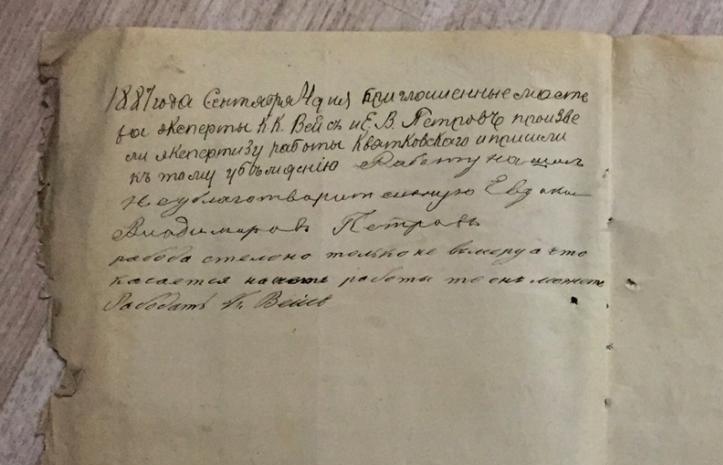 1887 года Сентября 4 дня Приглошенные масте
ра эксперты К К. Вейсъ и Е. В. Петровъ произве
ли экспертизу работы Квятковского и пришли
къ тому убѣждению Работу нашли
неудлаготварительную
Владимировъ Петровъ
работа стелоно только не вымеру а что
касается работы то онъ можетъ
Рабодатъ К. Вейсъ